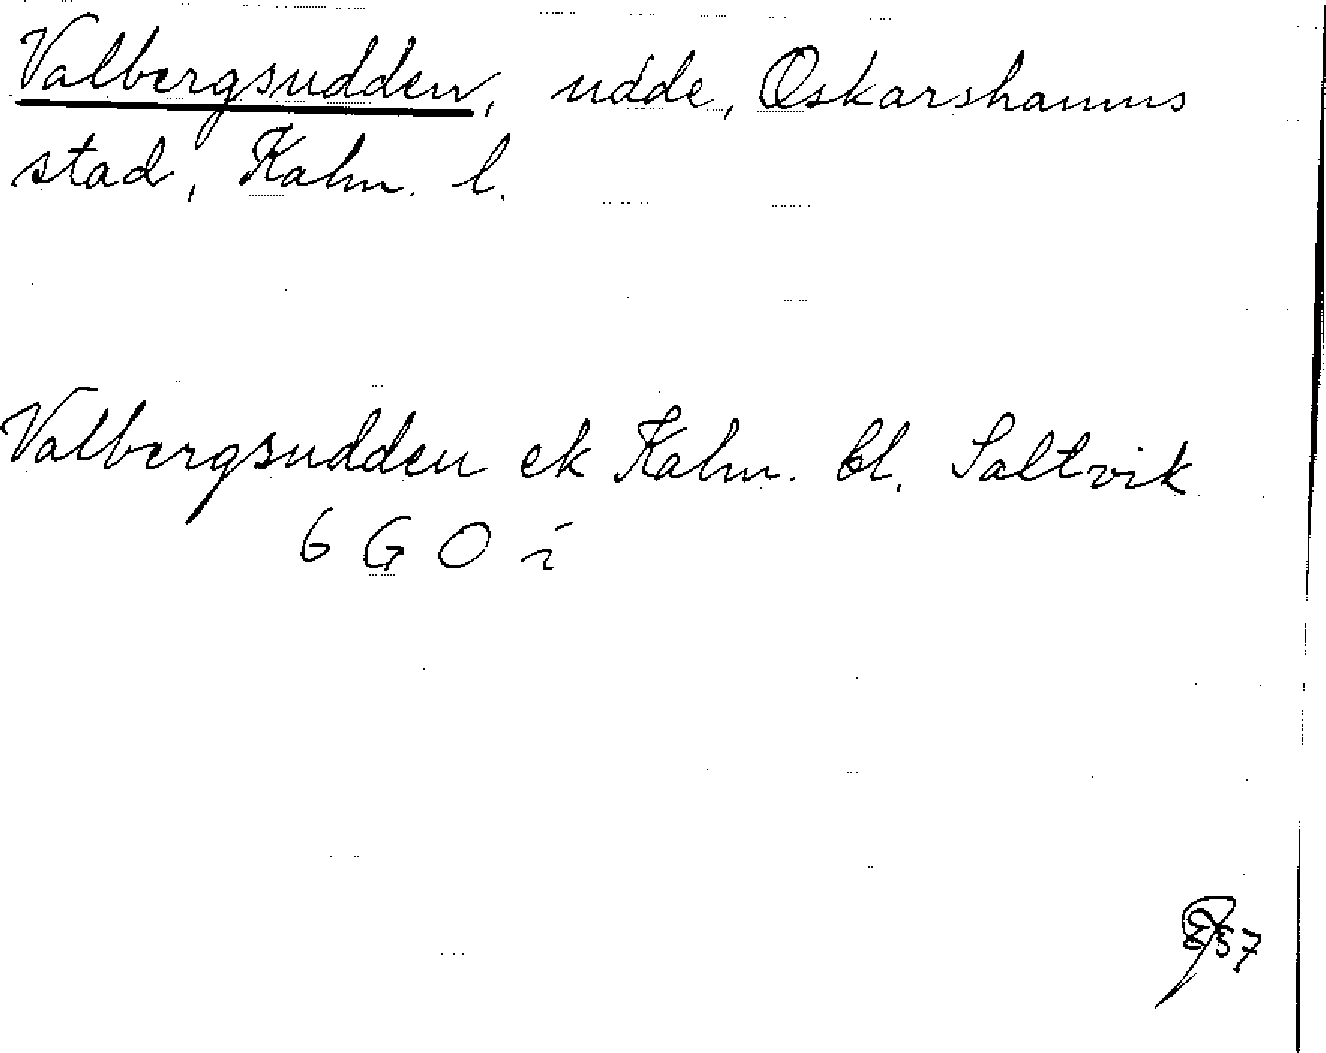 Valbergsudden, udde, Oskarshamns
stad, Kalm. l.
Valbergsudden ek Kalm. bl. Saltvik
6 G O i